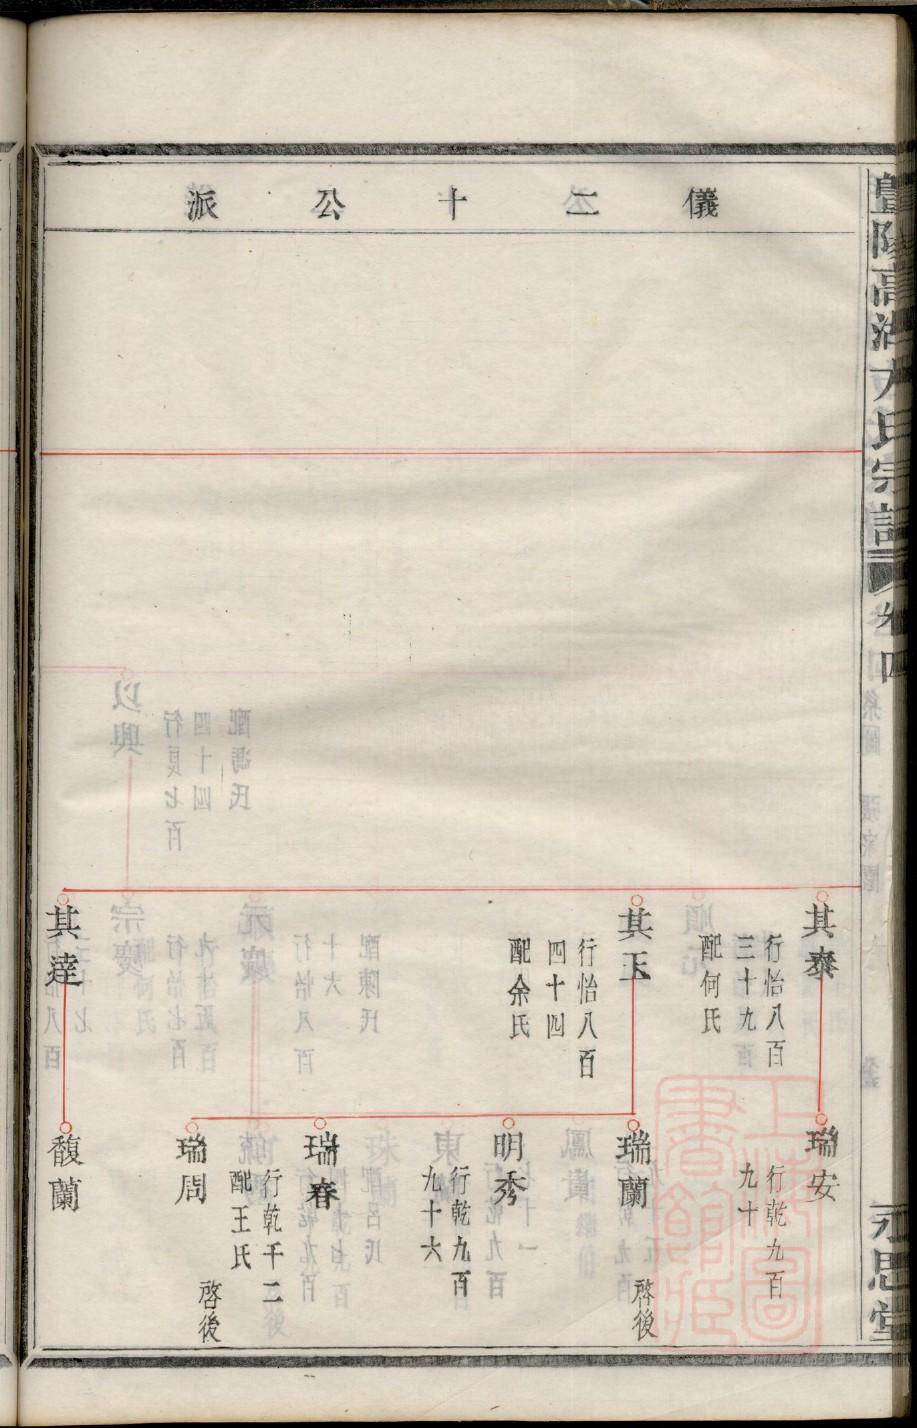 高湖
氏宗譜
卷四
永思堂
儀二十公派
其泰
行怡八百
三十九
配何氏
其玉
行怡八百
四十四
配余氏
其達
瑞安
行乾九百
九十
瑞蘭
啓後
明秀
行乾九百
九十六
瑞春
行乾千二
配王氏
瑞周
啓後
馥蘭
上海圖
書館藏